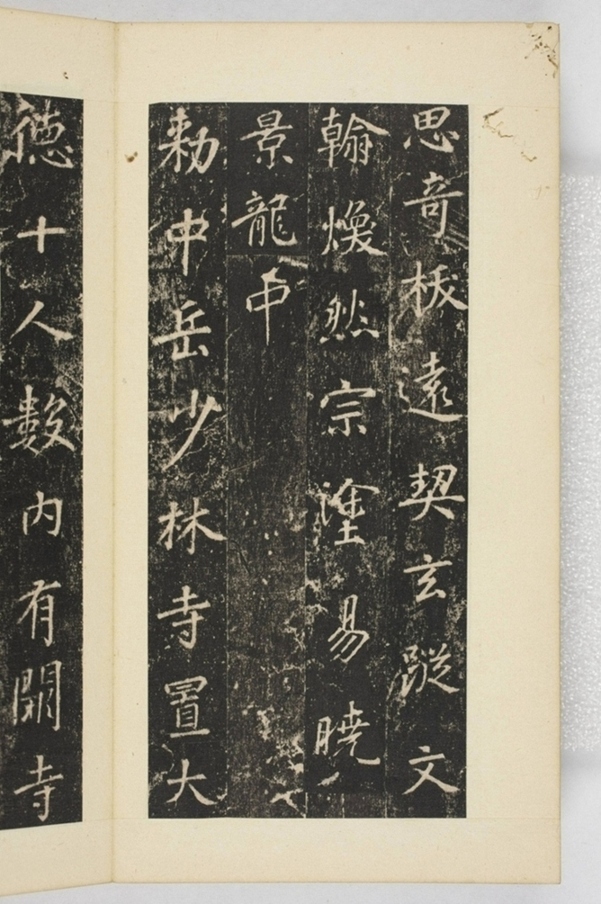 思奇拔遠契玄蹤文
翰煥然宗塗易曉
景龍中
勅中岳少林寺置大
德十人數內有闕寺